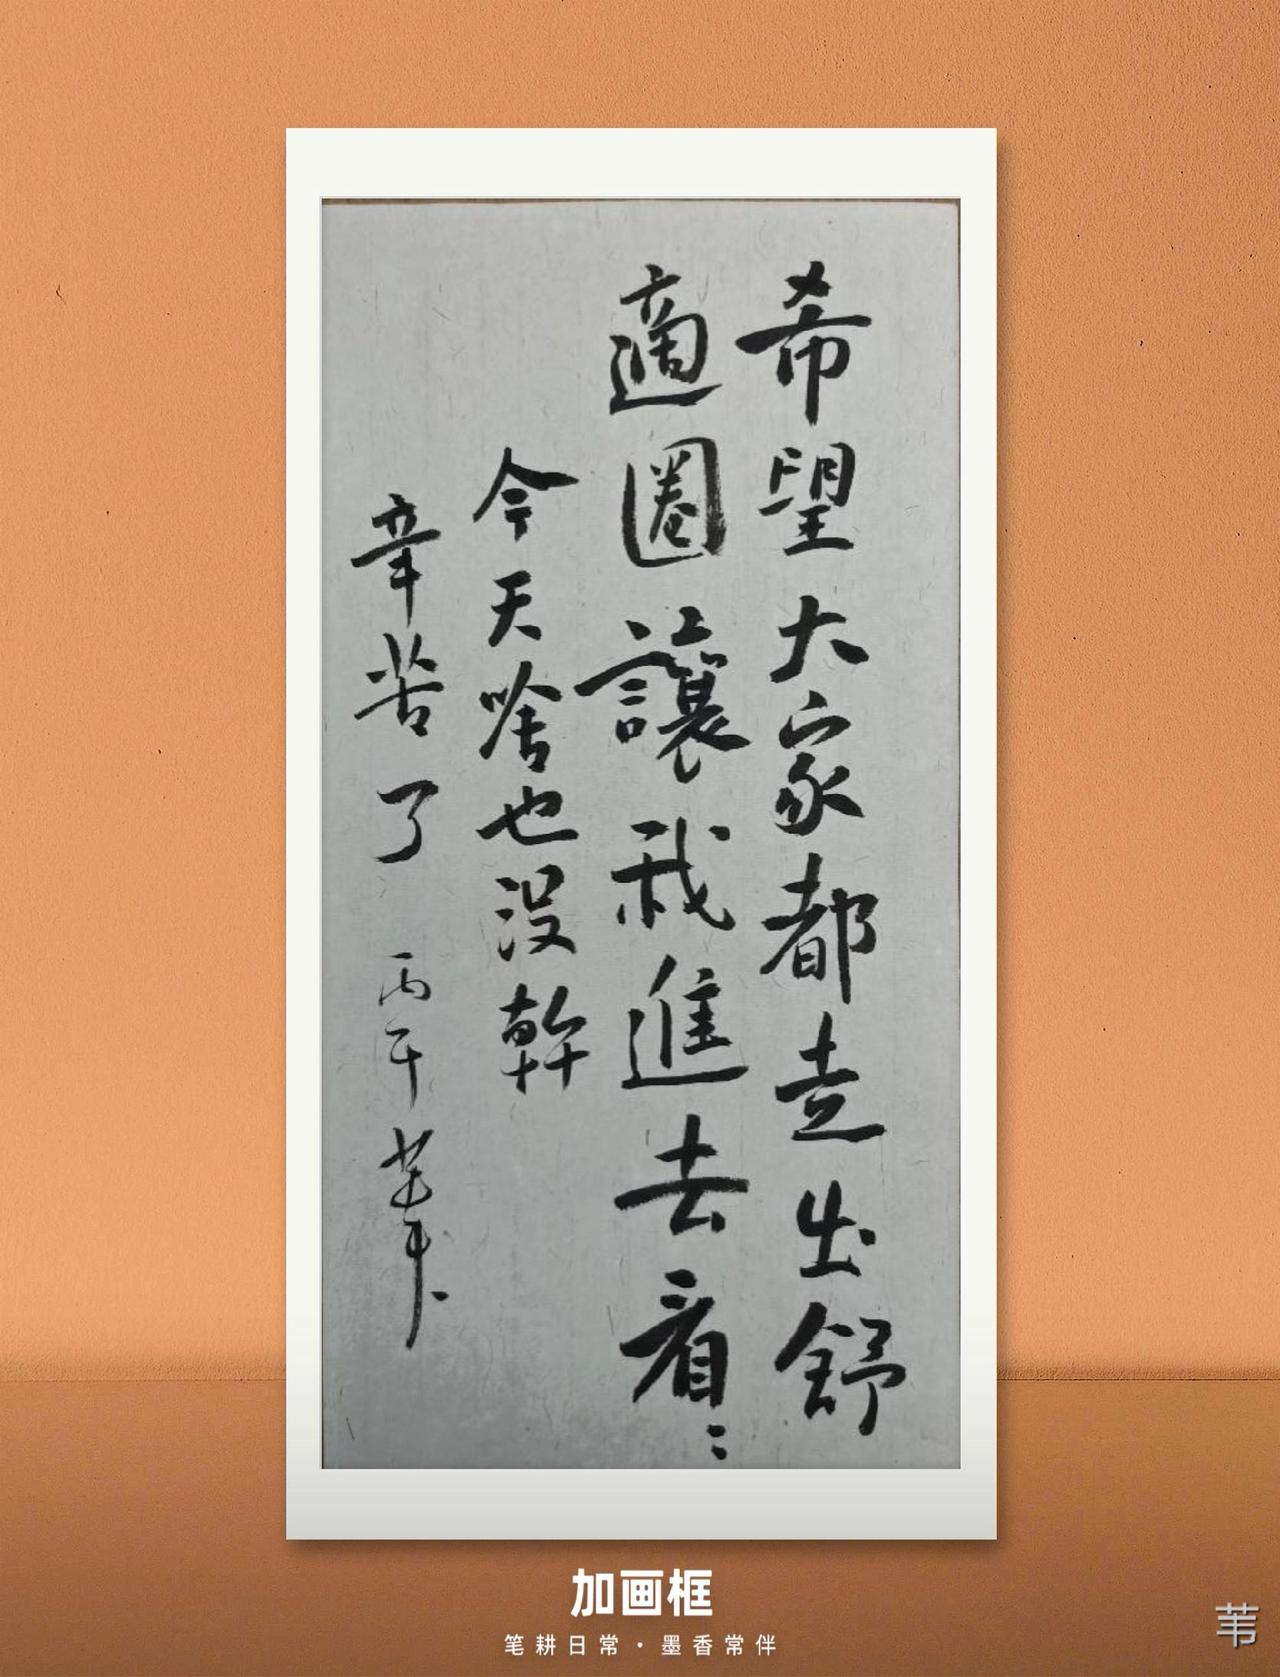 希望大家都走出舒
適圈讓我進去看〻
今天啥也沒幹
辛苦了 丙午 苇
加画框
笔耕日常·墨香常伴
苇